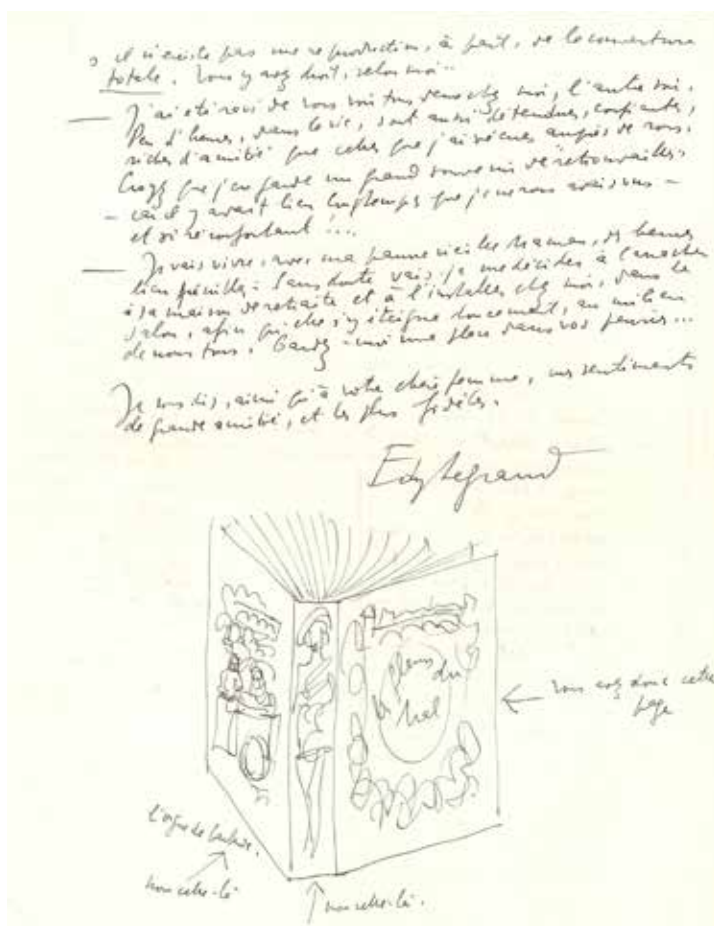 s'il n'existe pas une reproduction, à part, de la couverture
totale. Vous y avez droit, selon moi..
J'ai été ravi de vous voir tous deux chez moi, l'autre soir.
Peu d'heures, dans la vie, sont aussi détendues, confiantes,
riches d'amitié que celles que j'ai vécues auprès de vous.
Croyez que j'en garde un grand souvenir de retrouvailles
- car il y avait bien longtemps que je ne vous avais vus -
et si réconfortant !...
Je vais vivre, avec ma pauvre vieille Maman, des heures
bien pénibles. Sans doute vais-je me décider à l'arracher
à sa maison de retraite et à l'installer chez moi, dans le
salon, afin qu'elle s'y éteigne doucement, au milieu
de nous tous. Gardez-moi une place dans vos pensées...
Je vous dis, ainsi qu'à votre chère femme, mes sentiments
de grande amitié, et les plus fidèles.
Edy Legrand
fleurs du
mal
Vous avez donc cette
page
l'orgue de
non celle-là
non celle-là.